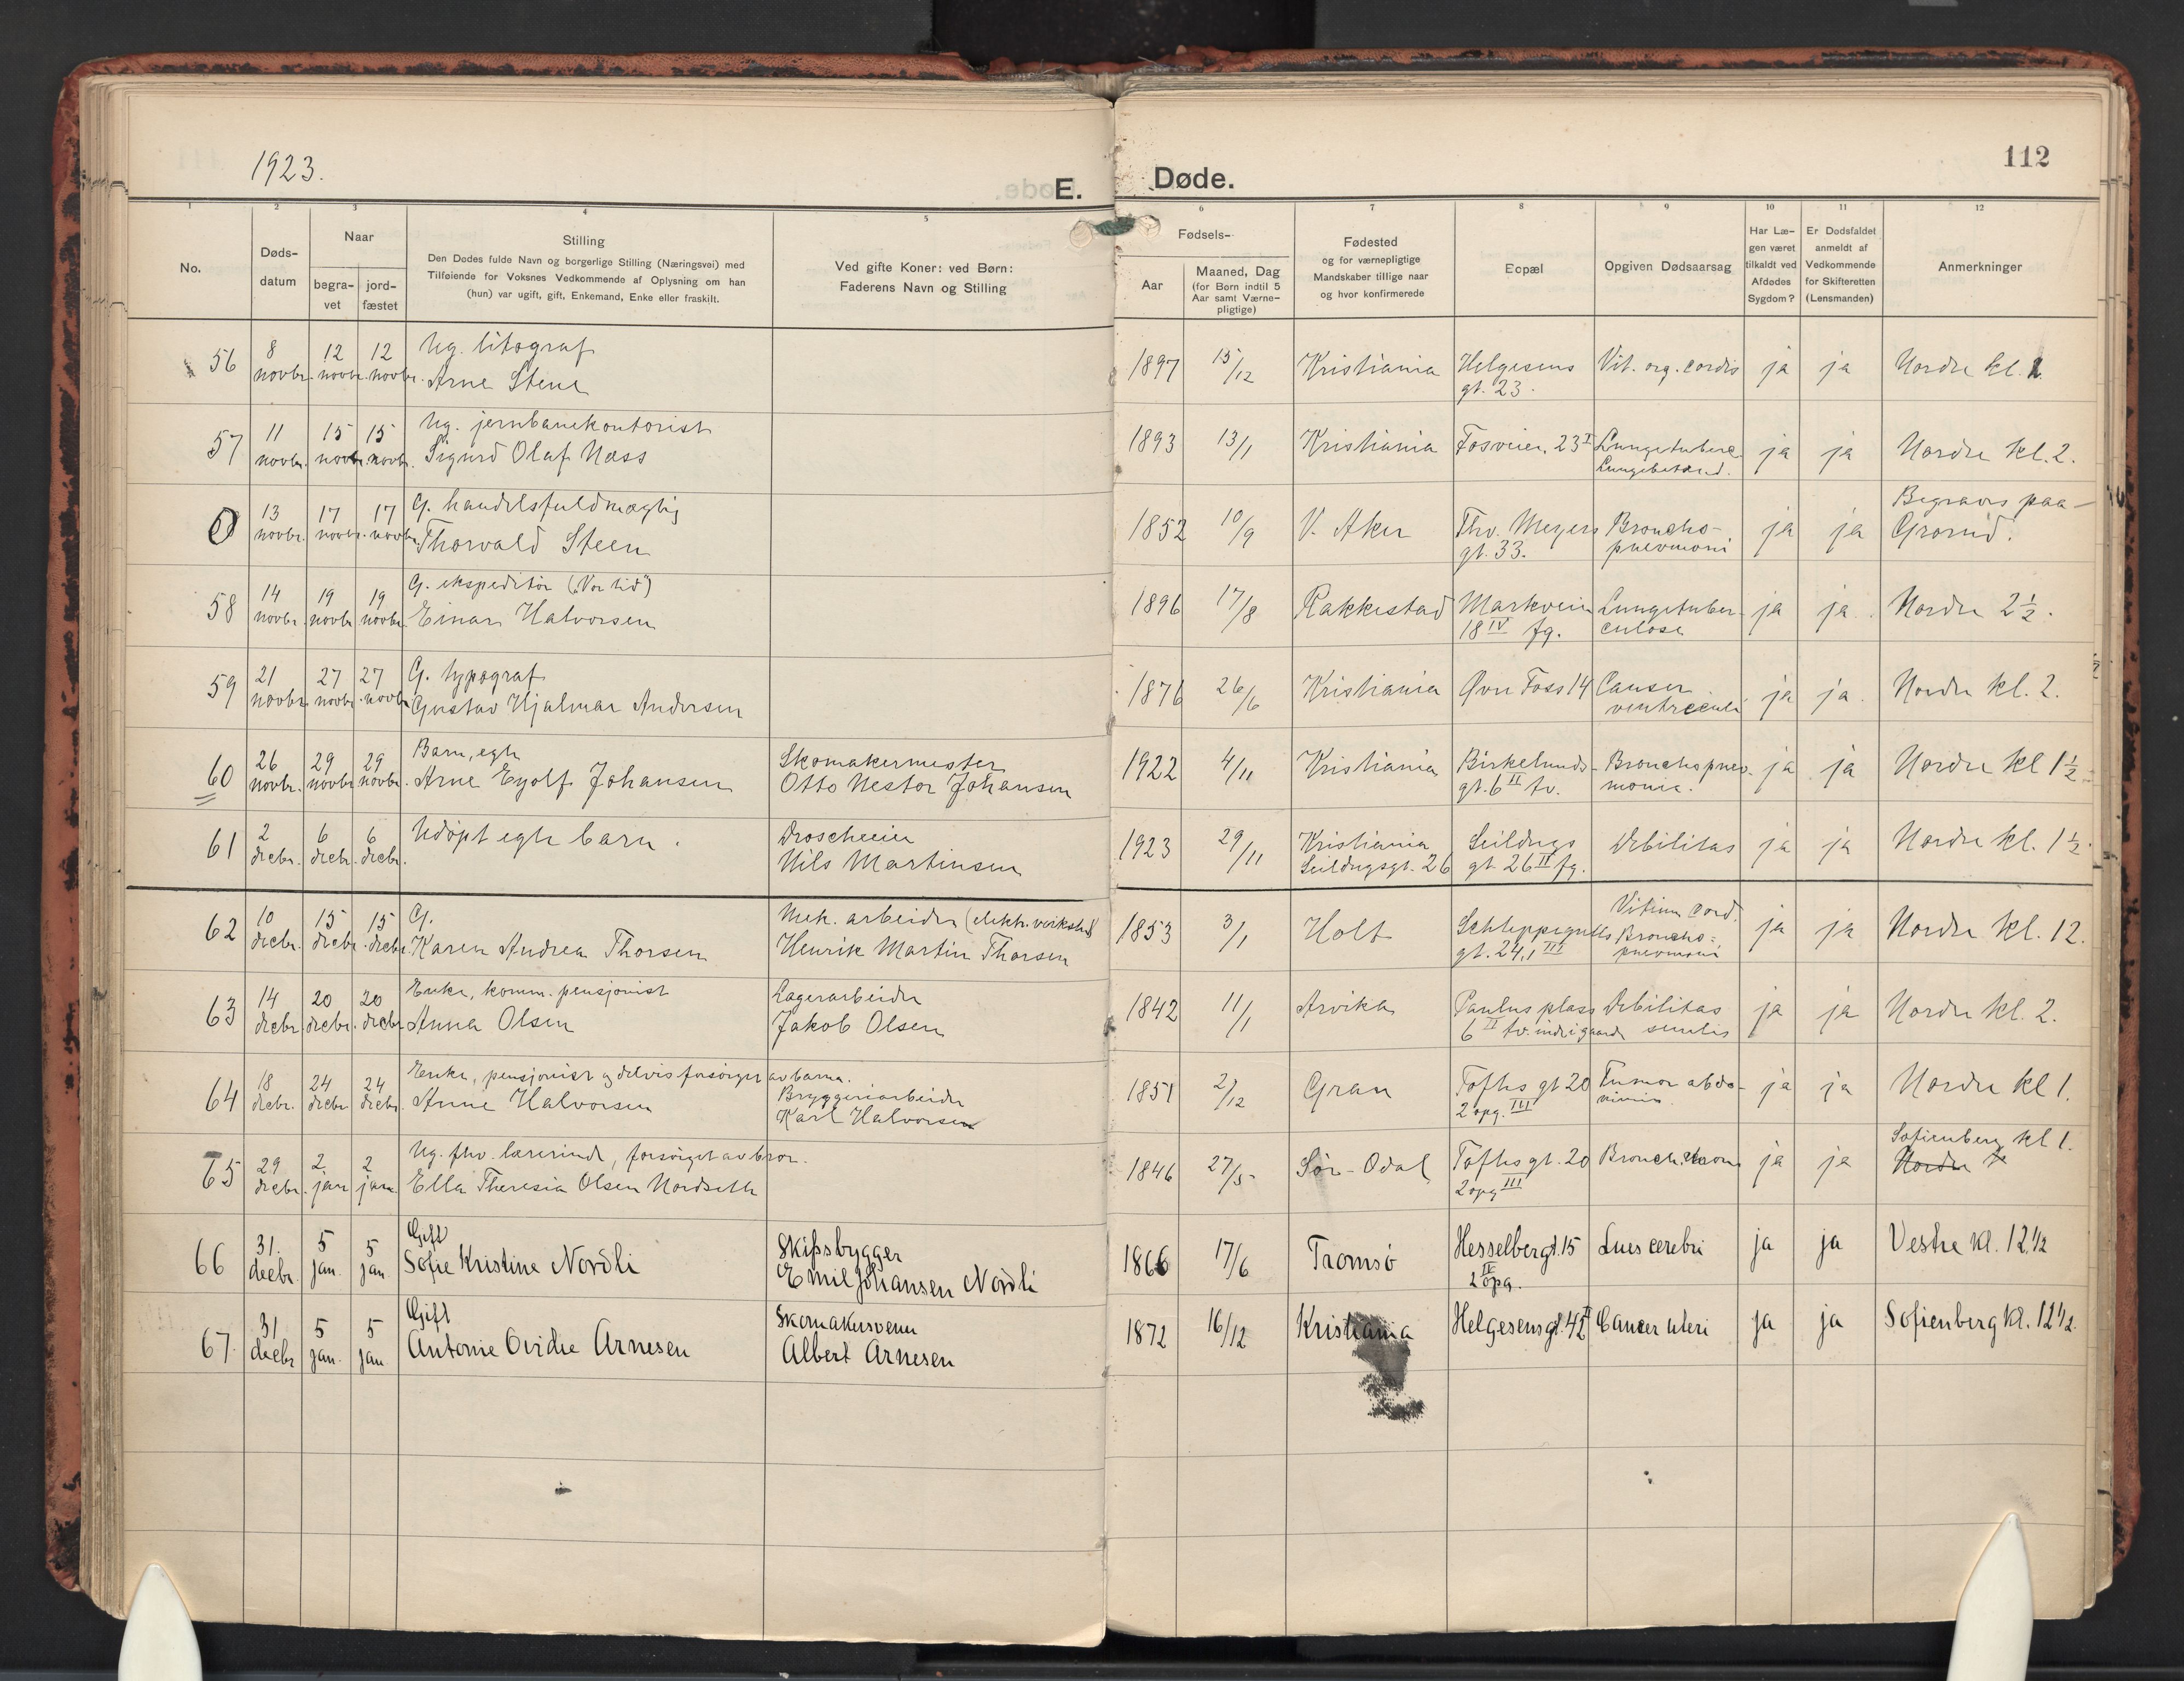 1923.
E. Døde.
112
1 2 3 4 5 6 7 8 9 10 11 12
No.
Døds-
datum
Naar
begra-
vet
jord-
fæstet
Stilling
Den Dødes fulde Navn og borgerlige Stilling (Næringsvei) med
Tilføiende for Voksnes Vedkommende af Oplysning om han
(hun) var ugift, gift, Enkemand, Enke eller fraskilt.
Ved gifte Koner: ved Børn:
Faderens Navn og Stilling
Fødsels-
Aar
Maaned, Dag
(for Børn indtil 5
Aar samt Værne-
pligtige)
Fødested
og for værnepligtige
Mandskaber tillige naar
og hvor konfirmerede
Bopæl
Opgiven Dødsaarsag
Har Læ-
gen været
tilkaldt ved
Afdødes
Sygdom?
Er Dødsfaldet
anmeldt af
Vedkommende
for Skifteretten
(Lensmanden)
Anmerkninger
56 8 novbr. 12 novbr. 12 novbr. Ug. litograf
Arne Stene
1897 15/12 Kristiania Helgesens gt. 23. Vit. org. cordis ja ja Nordre kl. 1.
57 11 novbr. 15 novbr. 15 novbr. Ug. jernbanekontorist
Sigurd Olaf Næss
1893 13/1 Kristiania Fosveien 23 I Lungetuberc. ja ja Nordre kl. 2.
0 13 novbr. 17 novbr. 17 novbr. G. handelsfuldmægtig
Thorvald Steen
1852 10/9 V. Aker Thv. Meyers gt. 33. Broncho-pneumoni ja ja Begraves paa Grorud.
58 14 novbr. 19 novbr. 19 novbr. G. ekspeditør ("Vor tid")
Einar Halvorsen
1896 17/8 Rakkestad Markveien 18 IV fg. Lungetuberculose ja ja Nordre 2 1/2.
59 21 novbr. 27 novbr. 27 novbr. G. typograf
Gustav Hjalmar Andersen
1876 26/6 Kristiania Øvre Foss 14 Cancer ventriculi ja ja Nordre kl. 2.
60 26 novbr. 29 novbr. 29 novbr. Barn, egte
Arne Eyolf Johansen
Skomakermester
Otto Nestor Johansen
1922 4/11 Kristiania Birkelunds-gt. 6 II tv. Bronchopneumonia. ja ja Nordre kl 1 1/2
61 2 decbr. 6 decbr. 6 decbr. Udøpt egte barn.
Droscheeier
Nils Martinsen
1923 29/11 Kristiania Seildugsgt. 26 Seildugsgt. 26 II fg. Debilitas ja ja Nordre kl. 1 1/2.
62 10 decbr. 15 decbr. 15 decbr. G.
Karen Andrea Thorsen
Mek. arbeider (elektr. verksted)
Henrik Martin Thorsen
1853 3/1 Holt Schleppegrells gt. 24, 1 III Vitium cord. Broncho-pneumoni ja ja Nordre kl. 12.
63 14 decbr. 20 decbr. 20 decbr. Enke, komm. pensjonist
Anna Olsen
Lagerarbeider
Jakob Olsen
1842 11/1 Arvika Paulus plass 6 II tv. inde i gaard Debilitas senilis ja ja Nordre kl. 2.
64 18 decbr. 24 decbr. 24 decbr. Enke, pensjonist og delvis forsørget av barna.
Anne Halvorsen
Bryggeriarbeider
Karl Halvorsen
1851 2/12 Gran Toftes gt 20 2 opg. III Tumor abdominis ja ja Nordre kl 1.
65 29 decbr. 2 jan 2 jan. Ug. fhv. lærerinde, forsørget av bror.
Ella Theresia Olsen Nordseth
1846 27/5 Sør-Odal Toftesgt. 20 2 opg III ja ja Sofienberg kl 1.
Nordre
66 31. decbr. 5 jan. 5 jan. Gift
Sofie Kristine Nordli
Skibsbygger
Emil Johansen Nordli
1866 17/6 Tromsø Hesselbergt. 15 II 2 opg. Lues cerebri ja ja Vestre kl. 12 1/2
67. 31 decbr 5 jan. 5 jan. Gift
Antonie Ovidie Arnesen
Skomakersvenn
Albert Arnesen
1872 16/12 Kristiania Helgesens gt. 42 II Cancer uteri ja ja Sofienberg kl. 12 1/2.